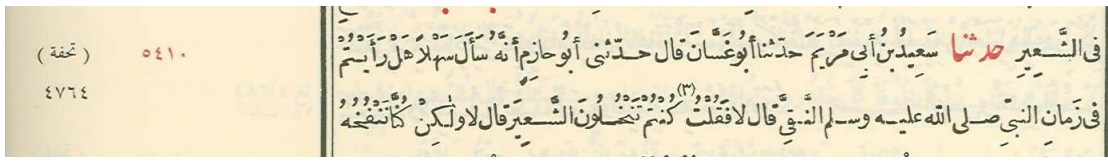 فى الشَّعِيرِ حدثنا سَعِيدُ بْنُ أَبِى مَرْيَمَ حدّثنا أبُو غَسَّانَ قال حدّثنى أبُو حازِمٍ أنَّهُ سَأَلَ سَهْلًا هَلْ رَأَيْتُمْ
فى زَمانِ النبىِّ صلى الله عليه وسلم النَّقِىَّ قال لا فَقُلْتُ (٣) كُنْتُمْ تَنْخُلُونَ الشَّعِيرَ قال لا ولٰكِنْ كُنَّا نَنْفُخُهُ
٥٤١٠ ( تحفة )
٤٧٦٤